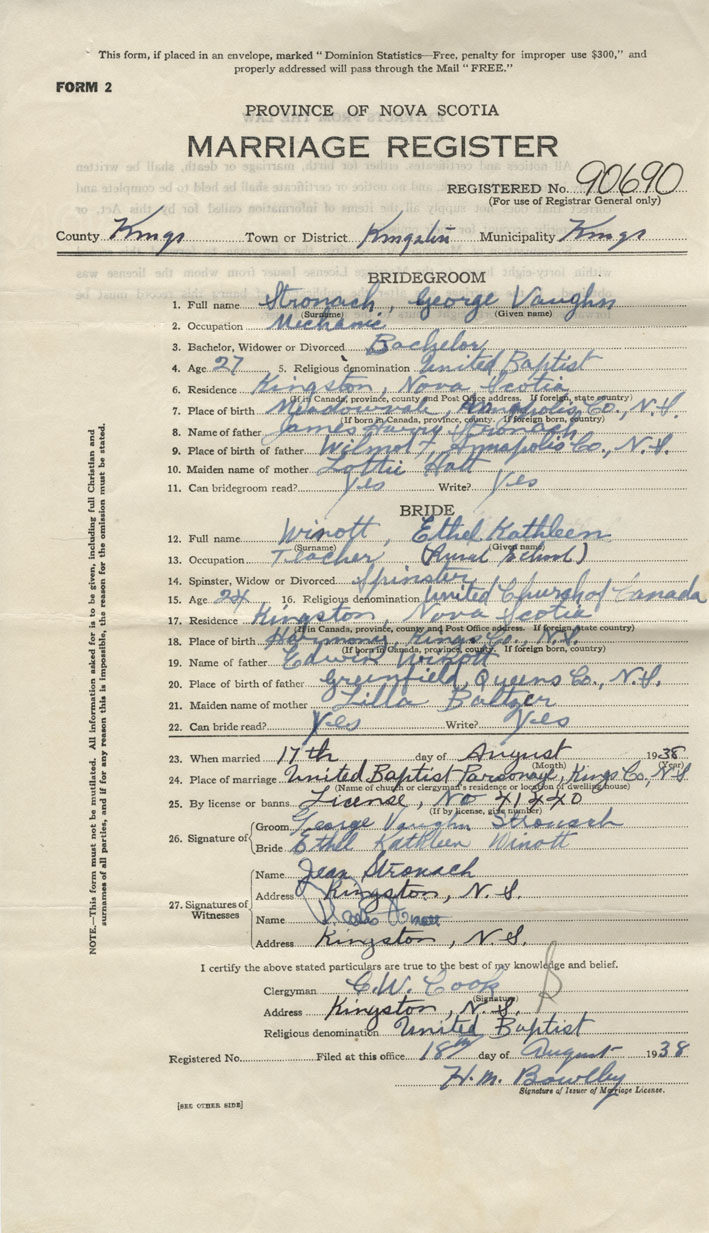 This form, if placed in an envelope, marked "Dominion Statistics—Free, penalty for improper use $300," and
properly addressed will pass through the Mail "FREE."
FORM 2
PROVINCE OF NOVA SCOTIA
MARRIAGE REGISTER
REGISTERED No. 90690
(For use of Registrar General only)
County Kings Town or District Kingston Municipality Kings
BRIDEGROOM
1. Full name Stronach, George Vaughn
(Surname) (Given name)
2. Occupation Mechanic
3. Bachelor, Widower or Divorced Bachelor
4. Age 27 5. Religious denomination United Baptist
6. Residence Kingston, Nova Scotia
(If in Canada, province, county and Post Office address. If foreign, state country)
7. Place of birth Meadowvale, Annapolis Co., N.S.
(If born in Canada, province, county. If foreign born, country)
8. Name of father James Harry Stronach
9. Place of birth of father Wilmot, Annapolis Co., N.S.
10. Maiden name of mother Lottie
11. Can bridegroom read? Yes Write? Yes
BRIDE
12. Full name Winott, Ethel Kathleen
(Surname) (Given name)
13. Occupation Teacher (Rural School)
14. Spinster, Widow or Divorced Spinster
15. Age 24 16. Religious denomination United Church of Canada
17. Residence Kingston, Nova Scotia
(If in Canada, province, county and Post Office address. If foreign, state country)
18. Place of birth Harmony, Kings Co., N.S.
(If born in Canada, province, county. If foreign born, country)
19. Name of father Edwin Winott
20. Place of birth of father Greenfield, Queens Co., N.S.
21. Maiden name of mother Lilla Baltzer
22. Can bride read? Yes Write? Yes
23. When married 17th day of August 1938
(Month) (Year)
24. Place of marriage United Baptist Parsonage, Kings Co., N.S
(Name of church or clergyman's residence or location of dwelling house)
25. By license or banns License, No 41440
(If by license, give number)
26. Signature of
Groom George Vaughn Stronach
Bride Ethel Kathleen Winott
27. Signatures of Witnesses
Name Jean Stronach
Address Kingston, N.S.
Name
Address Kingston, N.S.
I certify the above stated particulars are true to the best of my knowledge and belief.
Clergyman C.W. Cook
(Signature)
Address Kingston, N.S.
Religious denomination United Baptist
Registered No. Filed at this office 18th day of August 1938
H.M. Bowlby
Signature of Issuer of Marriage License.
[SEE OTHER SIDE]
NOTE.—This form must not be mutilated. All information asked for is to be given, including full Christian and
surnames of all parties, and if for any reason this is impossible, the reason for the omission must be stated.